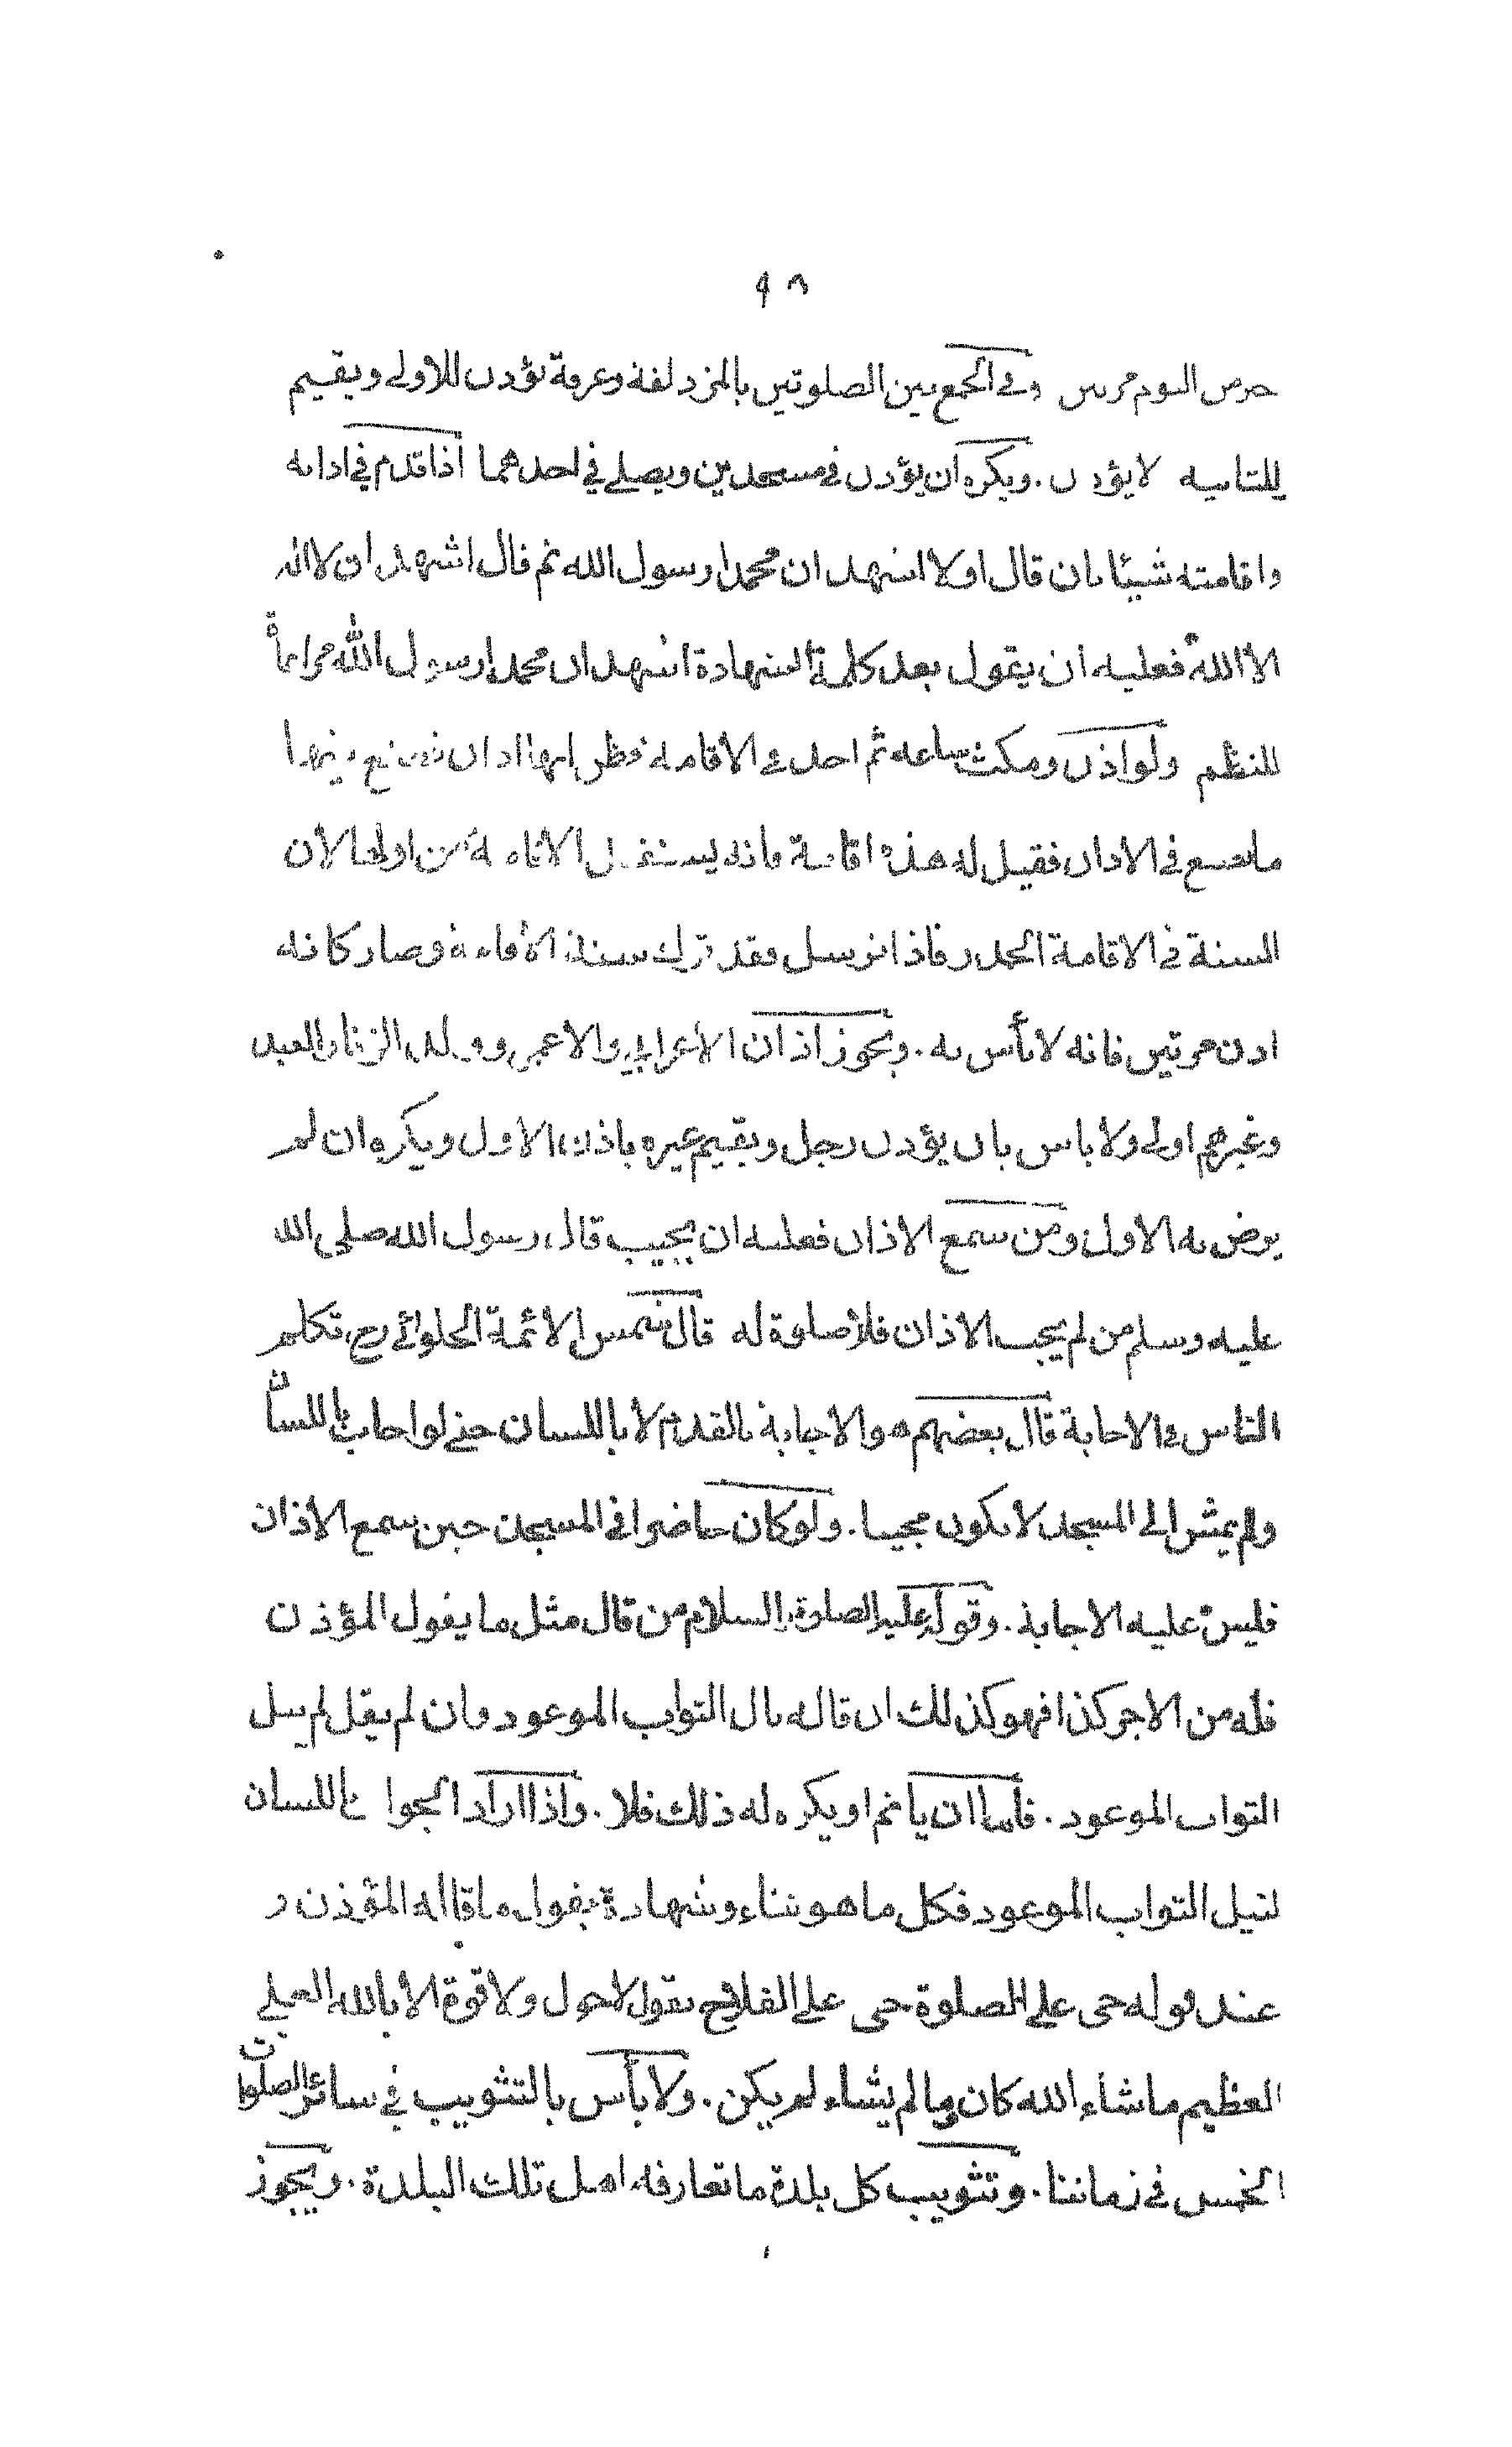 ٩٨
من النوم مرتين وفي الجمع بين الصلوتين بالمزدلفة وعرفة يؤذن للاولى ويقيم
للثانية لا يؤذن . ويكره ان يؤذن في مسجدين ويصلي في احدهما اذا قدم في اذانه
واقامته شيئا بان قال اولا اشهد ان محمدا رسول الله ثم قال اشهد ان لا اله
الا الله فعليه ان يقول بعد كلمة الشهادة اشهد ان محمدا رسول الله مراعاة
للنظم ولو اذن ومكث ساعة ثم اخذ في الاقامة فظن انها اذان فصنع فيها
ما يصنع في الاذان فقيل له هذه اقامة فانه يستقبل الاقامة من اولها لان
السنة في الاقامة الحدر فاذا ترسل فقد ترك سنة الاقامة وصار كانه
اذن مرتين فانه لا بأس به . ويجوز اذان الاعرابي والاعمى وولد الزنا والعبد
وغيرهم اولى ولا باس بان يؤذن رجل ويقيم غيره باذن الاول ويكره ان لم
يرض به الاول ومن سمع الاذان فعليه ان يجيب قال رسول الله صلى الله
عليه وسلم من لم يجب الاذان فلا صلوة له قال شمس الائمة الحلوائي رح تكلم
الناس في الاجابة قال بعضهم هو الاجابة بالقدم لا باللسان حتى لو اجاب باللسان
ولم يمش الى المسجد لا يكون مجيبا . ولو كان حاضرا في المسجد حين سمع الاذان
فليس عليه الاجابة . وقوله عليه الصلوة والسلام من قال مثل ما يقول المؤذن
فله من الاجر كذا فهو كذلك ان قاله نال الثواب الموعود وان لم يقل لم ينل
الثواب الموعود . فاما ان يأثم او يكره له ذلك فلا . واذا اراد الجواب باللسان
لنيل الثواب الموعود فكل ما هو ثناء وشهادة يقول ما قاله المؤذن و
عند قوله حى على الصلوة حى على الفلاح يقول لاحول ولا قوة الا بالله العلي
العظيم ما شاء الله كان وما لم يشاء لم يكن . ولا بأس بالتثويب في سائر الصلوات
الخمس في زماننا . وتثويب كل بلدة ما تعارفه اهل تلك البلدة . ويجوز